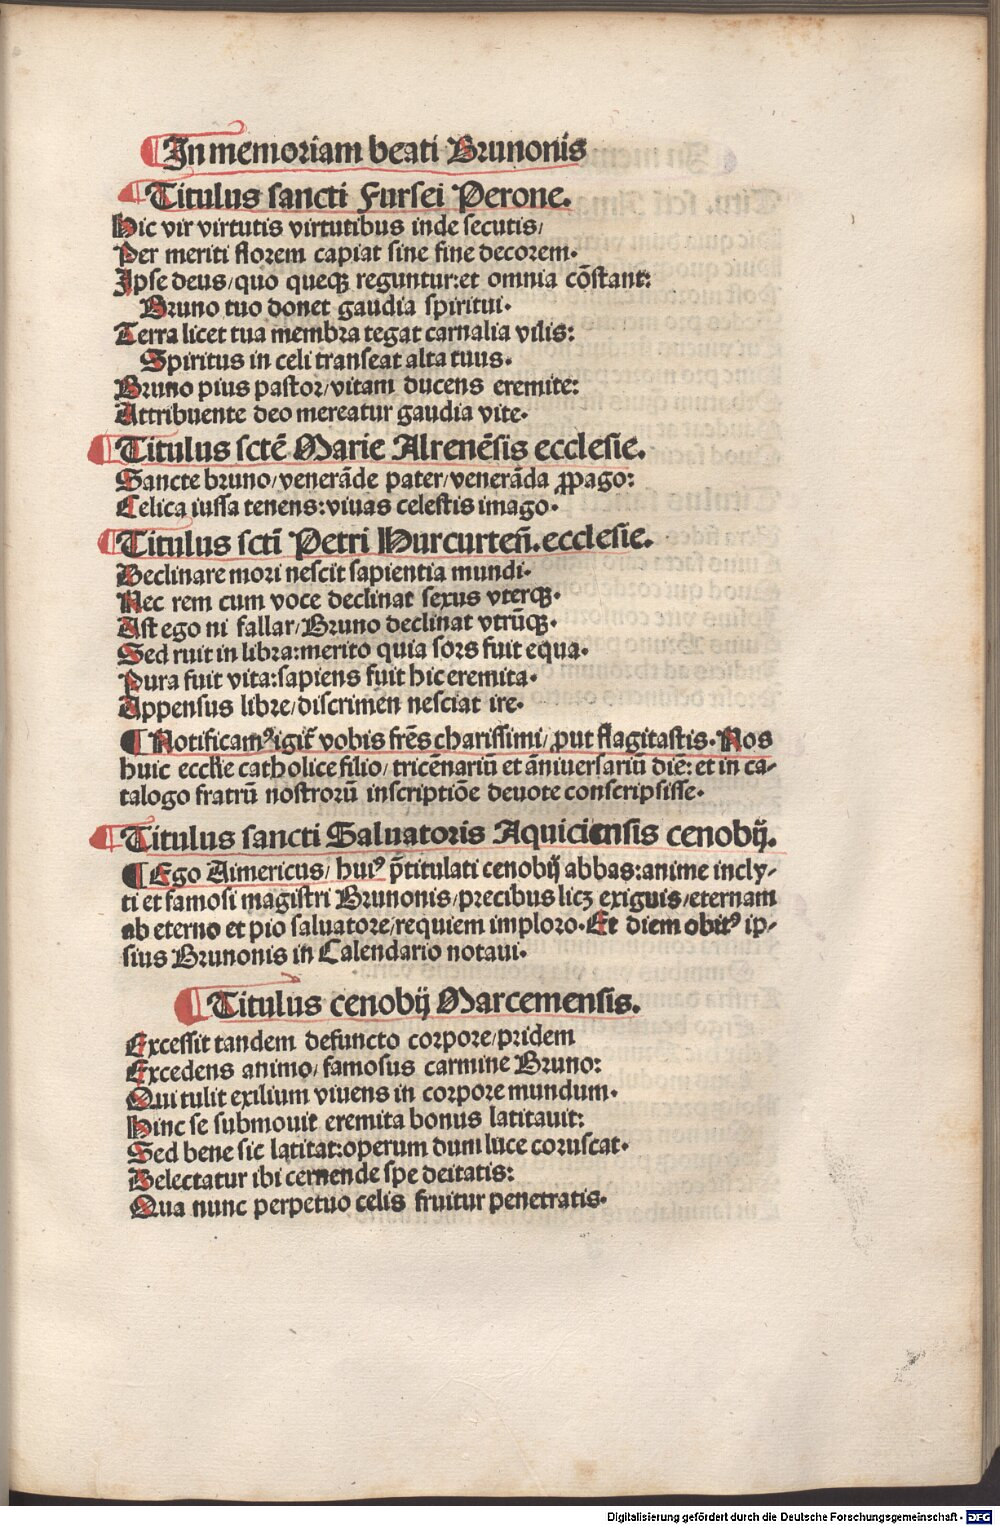 In memoriam beati Brunonis
Titulus sancti Fursei Perone.
Hic vir virtutis virtutibus inde secutis/
Per meriti florem capiat sine fine decorem.
Ipse deus/quo queqꝫ reguntur:et omnia cõstant:
Bruno tuo donet gaudia spiritui.
Terra licet tua membra tegat carnalia vilis:
Spiritus in celi transeat alta tuus.
Bruno pius pastor/vitam ducens eremite:
Attribuente deo mereatur gaudia vite.
Titulus sctẽ Marie Alrenẽsis ecclesie.
Sancte bruno/venerãde pater/venerãda ꝓpago:
Celica iussa tenens:viuas celestis imago.
Titulus sctĩ Petri Hurcurteñ.ecclesie.
Declinare mori nescit sapientia mundi.
Nec rem cum voce declinat sexus vterqꝫ.
Ast ego ni fallar/Bruno declinat vtrũqꝫ.
Sed ruit in libra:merito quia sors fuit equa.
Pura fuit vita:sapiens fuit hic eremita.
Appensus libre/discrimen nesciat ire.
¶ Notificamꝰ igit̃ vobis frẽs charissimi/ ꝓut flagitastis. Nos
huic eccłie catholice filio/ tricẽnariũ et ãniuersariũ diẽ: et in ca⸗
talogo fratrũ nostrorũ inscriptiõe deuote conscripsisse.
Titulus sancti Saluatoris Aquiciensis cenobij.
¶ Ego Aimericus/ huiꝰ p̃titulati cenobij abbas:anime incly⸗
ti et famosi magistri Brunonis/precibus licꝫ exiguis/eternam
ab eterno et pio saluatore/requiem imploro.Et diem obitꝰ ip⸗
sius Brunonis in Calendario notaui.
Titulus cenobij Marcemensis.
Excessit tandem defuncto corpore/pridem
Excedens animo/ famosus carmine Bruno:
Qui tulit exilium viuens in corpore mundum.
Hinc se submouit eremita bonus latitauit:
Sed bene sic latitat:operum dum luce coruscat.
Delectatur ibi cernende spe deitatis:
Qua nunc perpetuo celis fruitur penetratis.
Digitalisierung gefördert durch die Deutsche Forschungsgemeinschaft - DFG